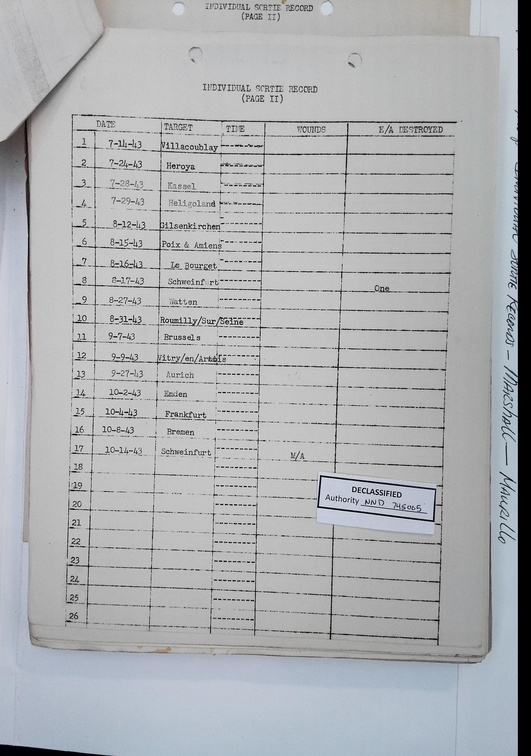 INDIVIDUAL SORTIE RECORD
(PAGE II)
INDIVIDUAL SORTIE RECORD
(PAGE II)
DATE TARGET TIME WOUNDS E/A DESTROYED
1 7-14-43 Villacoublay
2 7-24-43 Heroya
3 7-28-43 Kassel
4 7-29-43 Heligoland
5 8-12-43 Gilsenkirchen
6 8-15-43 Poix & Amiens
7 8-16-43 Le Bourget
8 8-17-43 Schweinfurt One
9 8-27-43 Watten
10 8-31-43 Roumilly/Sur/Seine
11 9-7-43 Brussels
12 9-9-43 Vitry/en/Artois
13 9-27-43 Aurich
14 10-2-43 Emden
15 10-4-43 Frankfurt
16 10-8-43 Bremen
17 10-14-43 Schweinfurt M/A
18
19
20
21
22
23
24
25
26
DECLASSIFIED
Authority NND 745005
Individual Sortie Records - Marshall - Maurillo